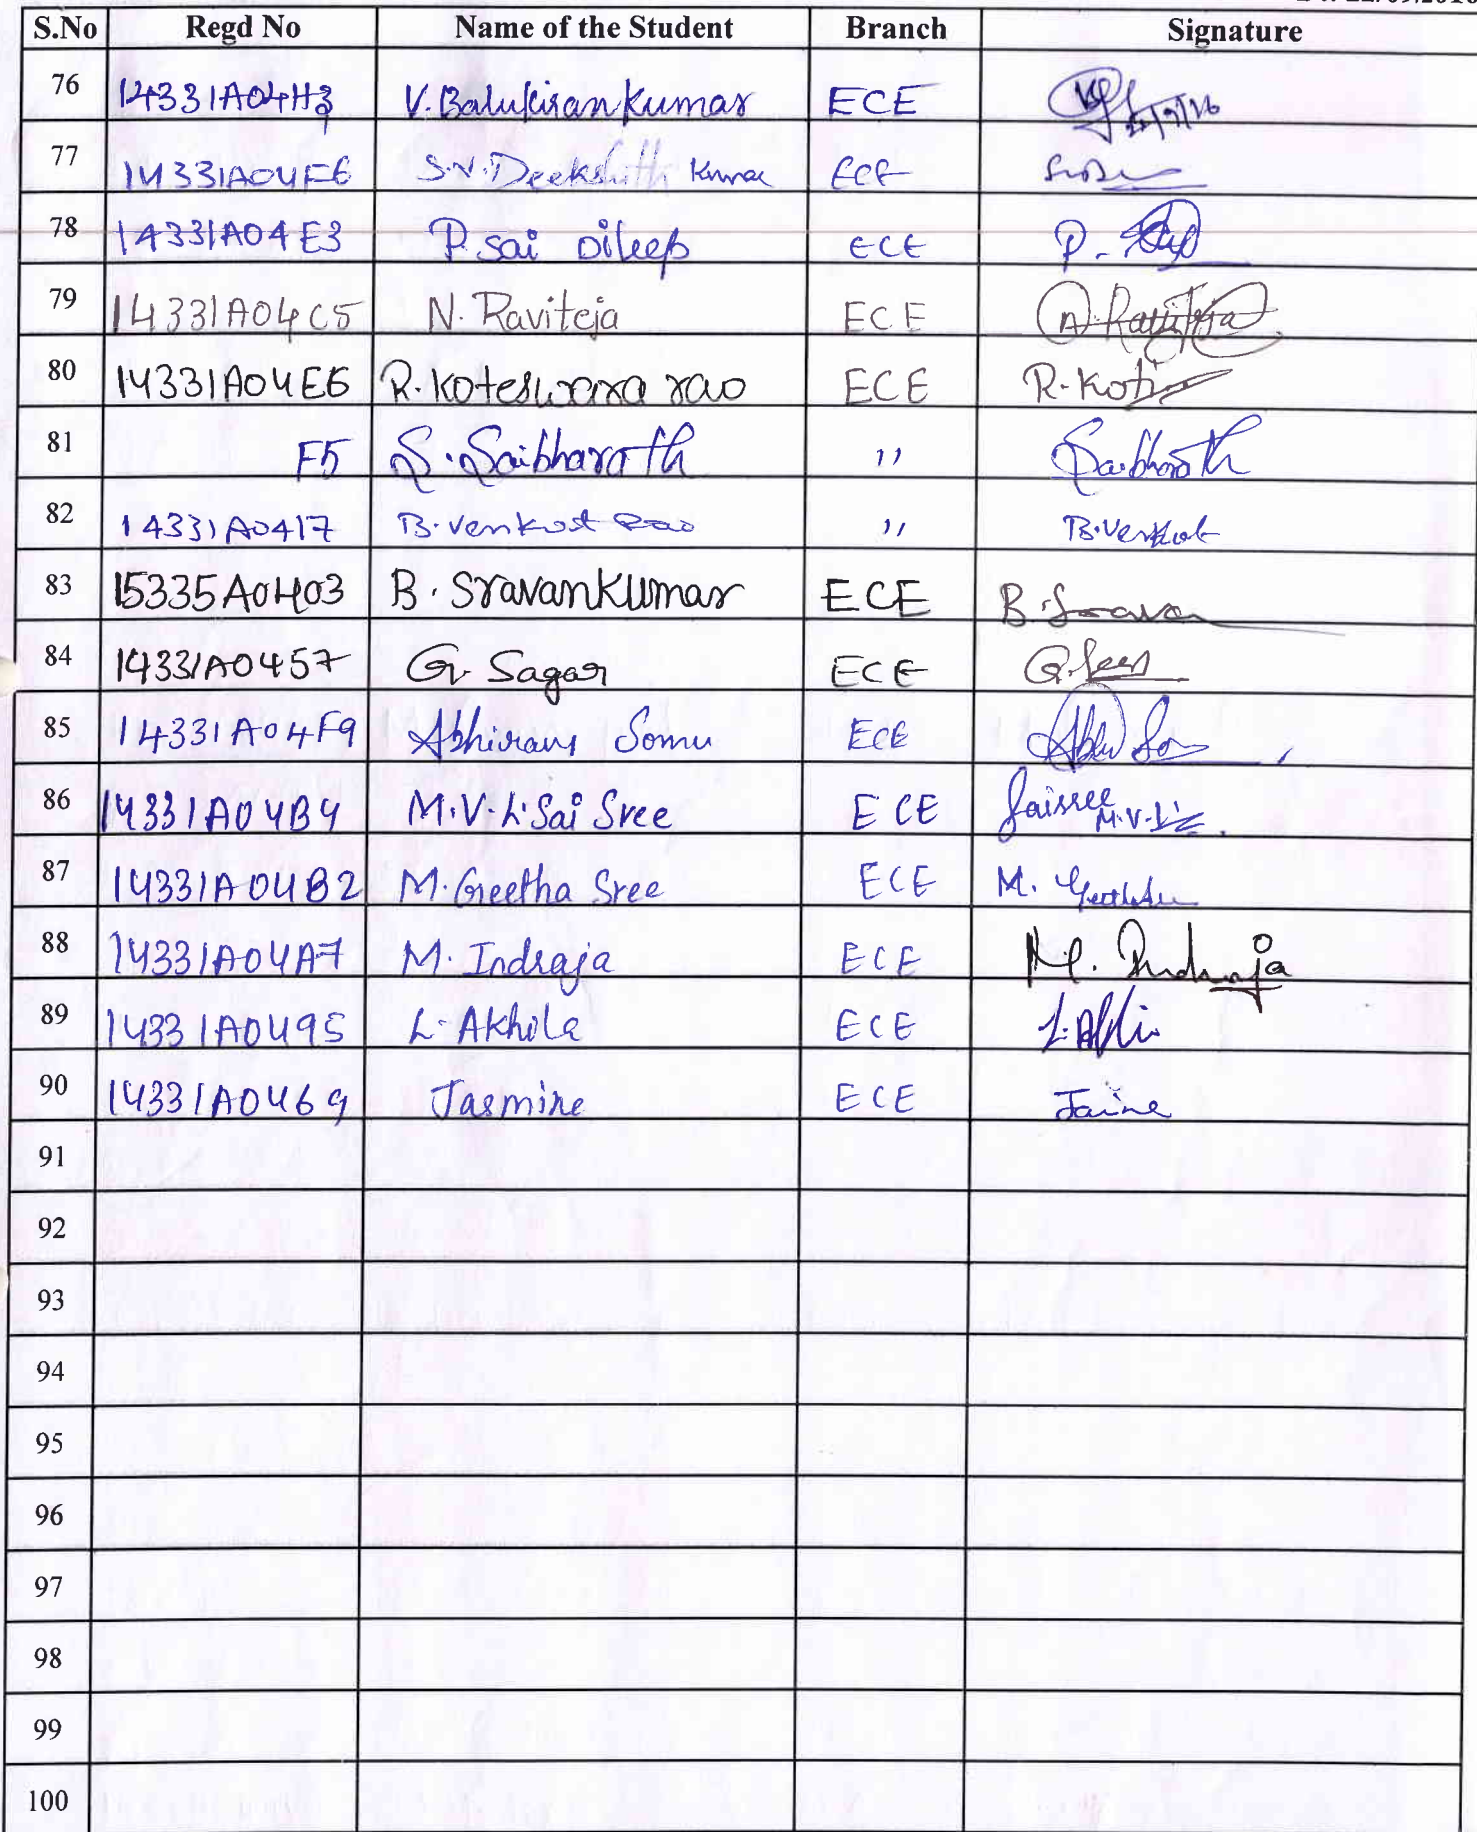 S.No Regd No Name of the Student Branch Signature
76 14331A04H3 V. Balukiran Kumar ECE
77 14331A04F6 S.V. Deekshith Kumar ECE
78 14331A04E3 P. Sai Dileep ECE P.
79 14331A04C5 N. Raviteja ECE N. Raviteja
80 14331A04E6 R. Koteswara rao ECE R. Koti
81 F5 S. Saibharath " Saibharath
82 14331A0417 B. Venkat Rao " B. Venkat
83 15335A0403 B. Sravankumar ECE B. Sravan
84 14331A0457 G. Sagar ECE
85 14331A04F9 Abhiram Somu ECE
86 14331A04B4 M.V.L. Sai Sree ECE Saisree
M.V.L
87 14331A04B2 M. Geetha Sree ECE M. Geethasree
88 14331A04A7 M. Indraja ECE M. Indraja
89 14331A0495 L. Akhila ECE
90 14331A0469 Jasmine ECE
91
92
93
94
95
96
97
98
99
100